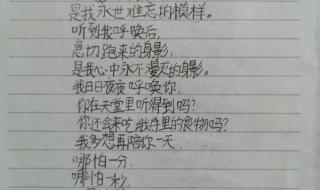 是我永世难忘的模样。
听到我呼唤后，
急切跑来的身影，
是我心中永不漫灭的身影。
我日日夜夜呼唤你，
你在天堂里听得到吗？
你还会来吃我手里的食物吗？
我多想再陪你一天，
哪怕一分，
哪怕一秒，